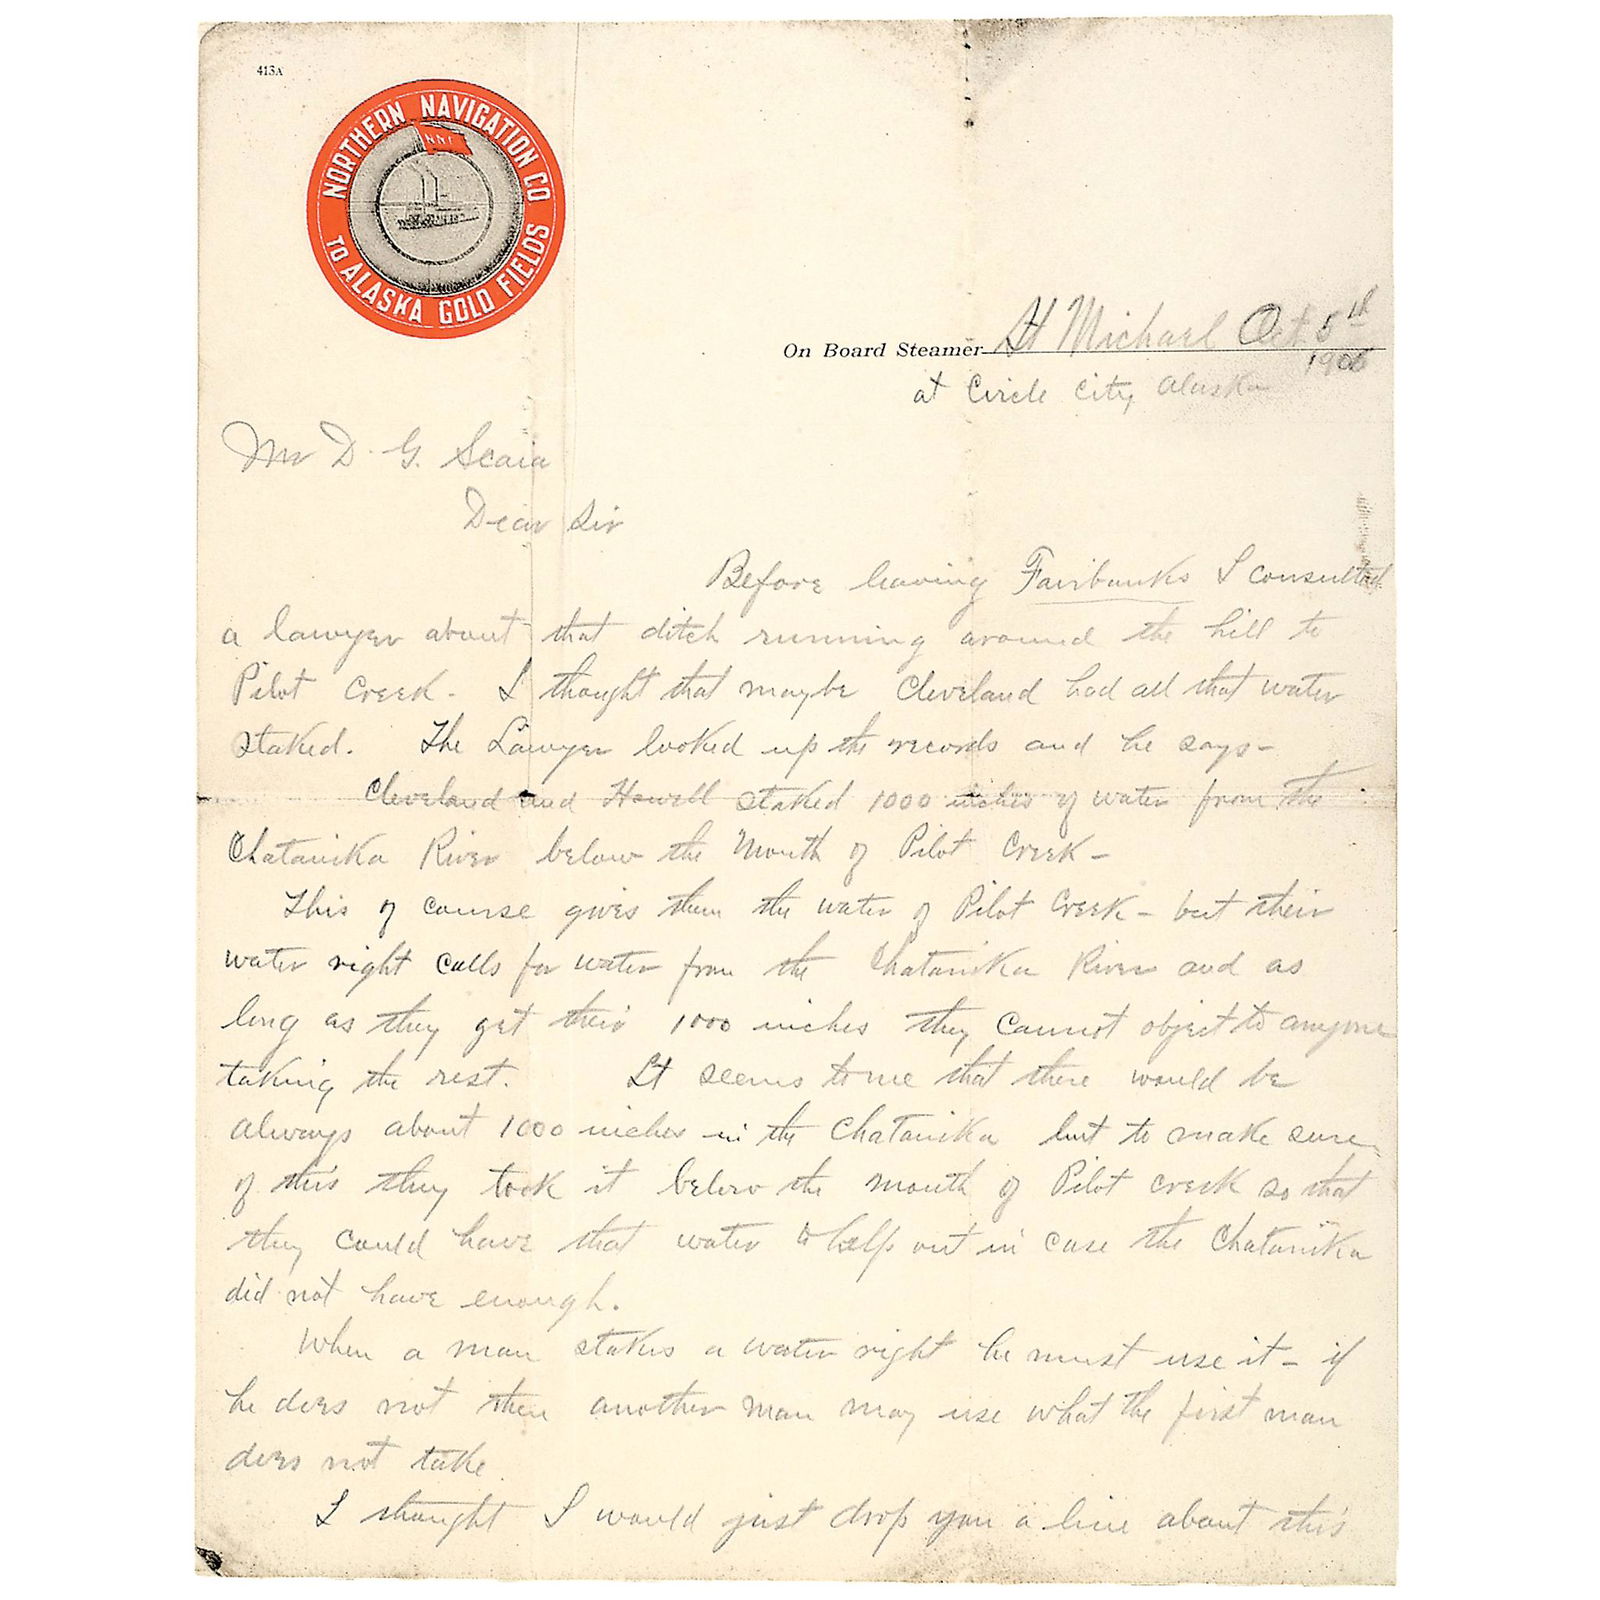 413A
NORTHERN NAVIGATION CO
TO ALASKA GOLD FIELDS
N N C
On Board Steamer St Michael Oct. 5th
1906
at Circle City, Alaska
Mr D. G. Scaia
Dear Sir
Before leaving Fairbanks I consulted
a lawyer about that ditch running around the hill to
Pilot Creek. I thought that maybe Cleveland had all that water
staked. The Lawyer looked up the records and he says-
Cleveland and Howell staked 1000 inches of water from the
Chatanika River below the Mouth of Pilot Creek-
This of course gives them the water of Pilot Creek - but their
water right calls for water from the Chatanika River and as
long as they get their 1000 inches they cannot object to anyone
taking the rest. It seems to me that there would be
always about 1000 inches in the Chatanika but to make sure
of this they took it below the mouth of Pilot creek so that
they could have that water to help out in case the Chatanika
did not have enough.
When a man stakes a water right he must use it - if
he does not then another man may use what the first man
does not take
I thought I would just drop you a line about this